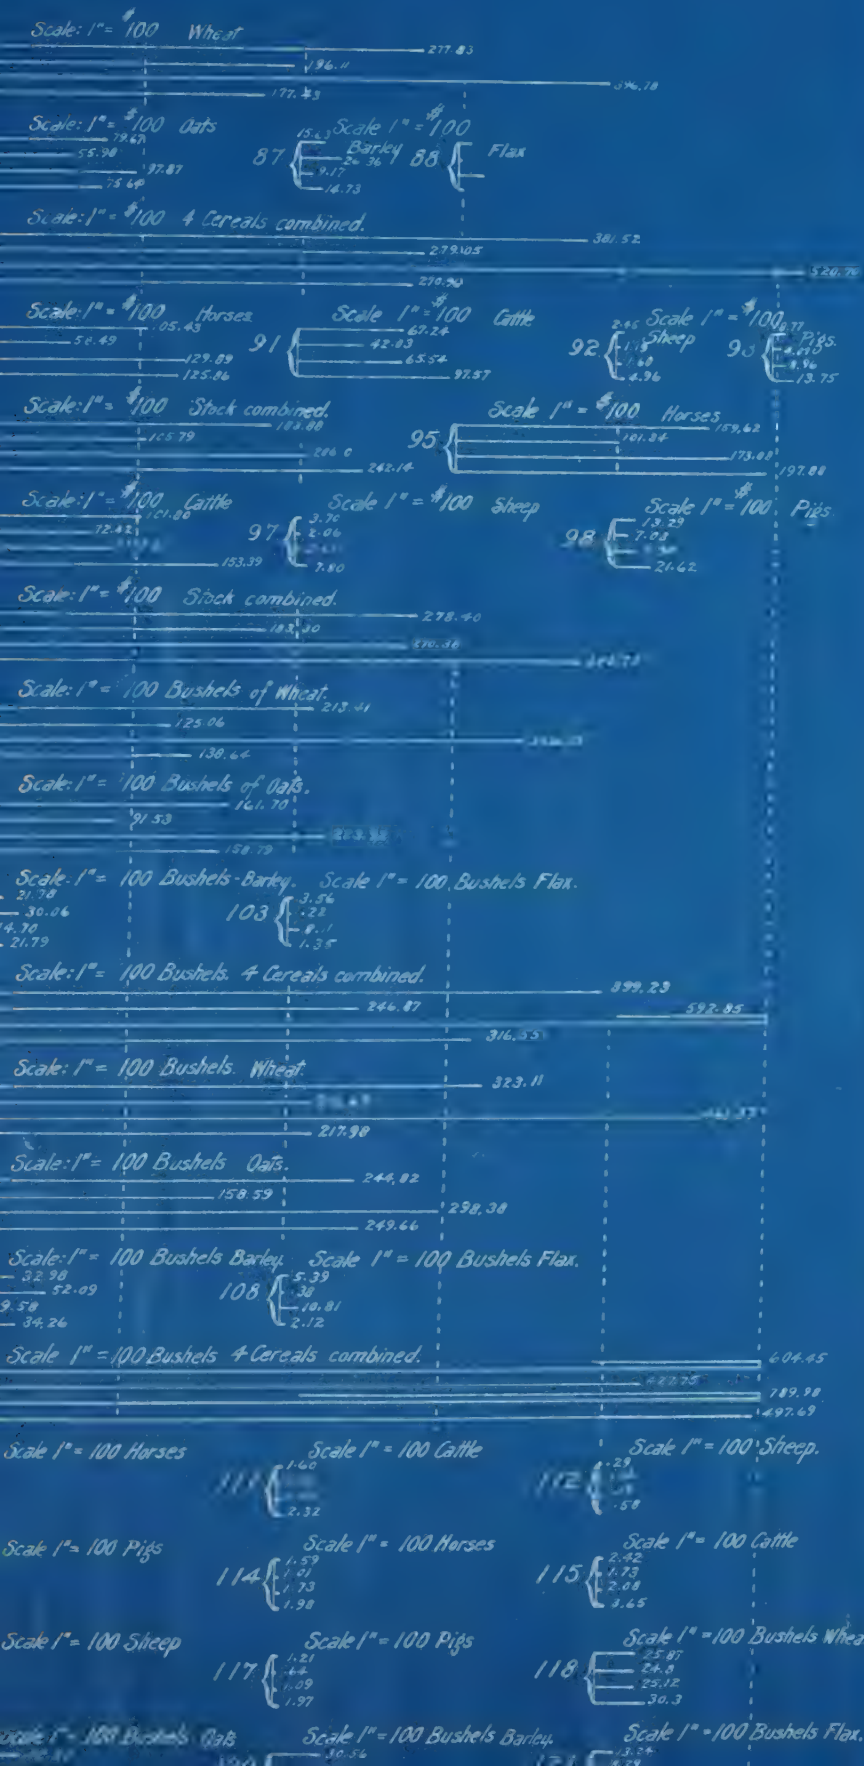 Scale: 1" = $100 Wheat
277.83
196.11
177.43
Scale: 1" = $100 Oats
79.67
55.90
97.87
75.64
87
Scale 1" = $100
Barley
15.63
26 36
9.17
14.73
88
Flax
Scale: 1" = $100 4 Cereals combined.
381.52
279.05
270.90
520.70
Scale: 1" = $100 Horses
58.49
129.89
125.86
91
Scale 1" = $100 Cattle
67.24
42.03
65.54
97.57
92
Scale 1" = $100
Sheep
4.96
Pigs.
8.96
13.75
Scale: 1" = $100 Stock combined.
105.79
242.14
95
Scale 1" = $100 Horses
159.62
101.84
173.08
197.88
Scale: 1" = $100 Cattle
72.42
153.39
97
Scale 1" = $100 Sheep
3.70
2.06
7.80
98
Scale 1" = $100 Pigs
13.29
7.03
21.62
Scale: 1" = $100 Stock combined.
278.40
183.30
Scale: 1" = 100 Bushels of Wheat.
213.41
125.06
138.64
Scale: 1" = 100 Bushels of Oats.
161.70
91 53
158.79
Scale: 1" = 100 Bushels-Barley.
21.78
30.06
4.70
21.79
103
Scale 1" = 100 Bushels Flax.
3.56
.22
1.35
Scale: 1" = 100 Bushels. 4 Cereals combined.
399.23
246.87
592.85
316.55
Scale: 1" = 100 Bushels. Wheat.
323.11
217.98
Scale: 1" = 100 Bushels Oats.
244.82
158.59
298.38
249.66
Scale: 1" = 100 Bushels Barley
32.98
52.09
9.58
34.26
108
Scale 1" = 100 Bushels Flax.
5.39
38
10.81
2.12
Scale 1" = 100 Bushels 4 Cereals combined.
604.45
427.75
789.98
497.69
Scale 1" = 100 Horses
111
Scale 1" = 100 Cattle
1.60
2.32
112
Scale 1" = 100 Sheep.
.29
.58
Scale 1" = 100 Pigs
114
Scale 1" = 100 Horses
1.59
1.01
1.73
1.98
115
Scale 1" = 100 Cattle
2.42
1.73
2.08
3.65
Scale 1" = 100 Sheep
117
Scale 1" = 100 Pigs
1.21
.64
1.09
1.97
118
Scale 1" = 100 Bushels Whea
25.87
24.8
25.12
30.3
Scale 1" = 100 Bushels Oats
Scale 1" = 100 Bushels Barley.
30.56
Scale 1" = 100 Bushels Flax.
13.24